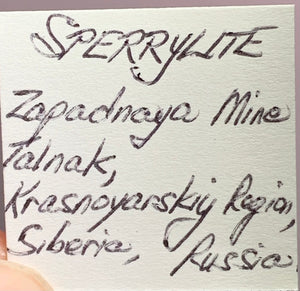 SPERRYLITE
Zapadnaya Mine
Talnak,
Krasnoyarskij Region,
Siberia, Russia.